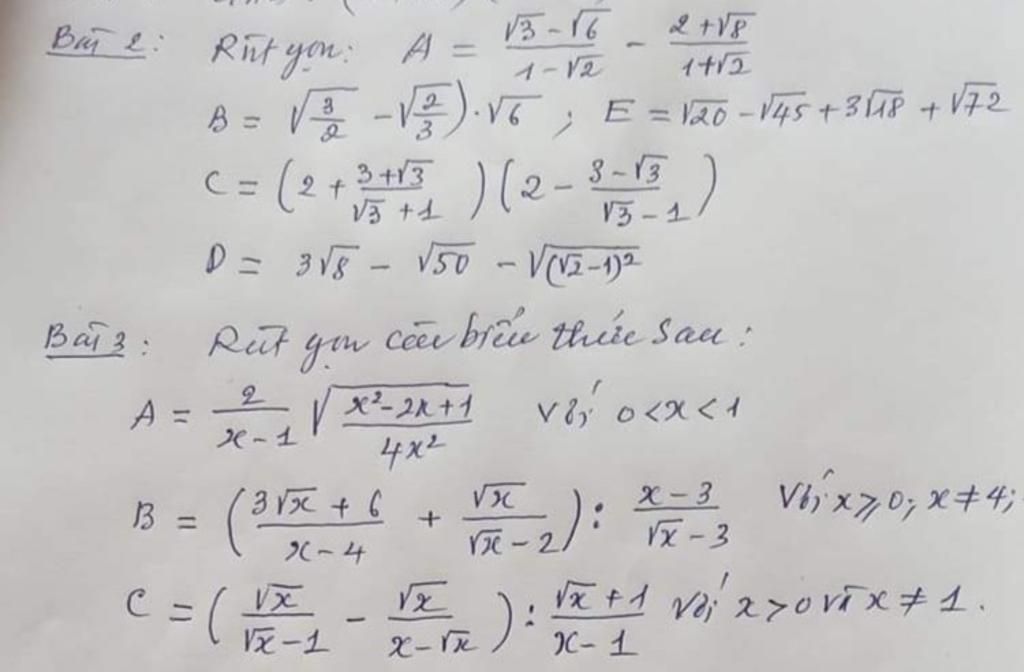 Bài 2: Rút gọn: A = \frac{\sqrt{3}-\sqrt{6}}{1-\sqrt{2}} - \frac{2+\sqrt{8}}{1+\sqrt{2}}
B = \sqrt{\frac{3}{2}} - \sqrt{\frac{2}{3}}) \cdot \sqrt{6} ; E = \sqrt{20} - \sqrt{45} + 3\sqrt{18} + \sqrt{72}
C = (2 + \frac{3+\sqrt{3}}{\sqrt{3}+1})(2 - \frac{3-\sqrt{3}}{\sqrt{3}-1})
D = 3\sqrt{8} - \sqrt{50} - \sqrt{(\sqrt{2}-1)^2}
Bài 3: Rút gọn các biểu thức sau:
A = \frac{2}{x-1} \sqrt{\frac{x^2-2x+1}{4x^2}} với 0<x<1
B = (\frac{3\sqrt{x}+6}{x-4} + \frac{\sqrt{x}}{\sqrt{x}-2}) : \frac{x-3}{\sqrt{x}-3} Với x ⩾ 0; x ≠ 4;
C = (\frac{\sqrt{x}}{\sqrt{x}-1} - \frac{\sqrt{x}}{x-\sqrt{x}}) : \frac{\sqrt{x}+1}{x-1} Với x>0 và x ≠ 1.